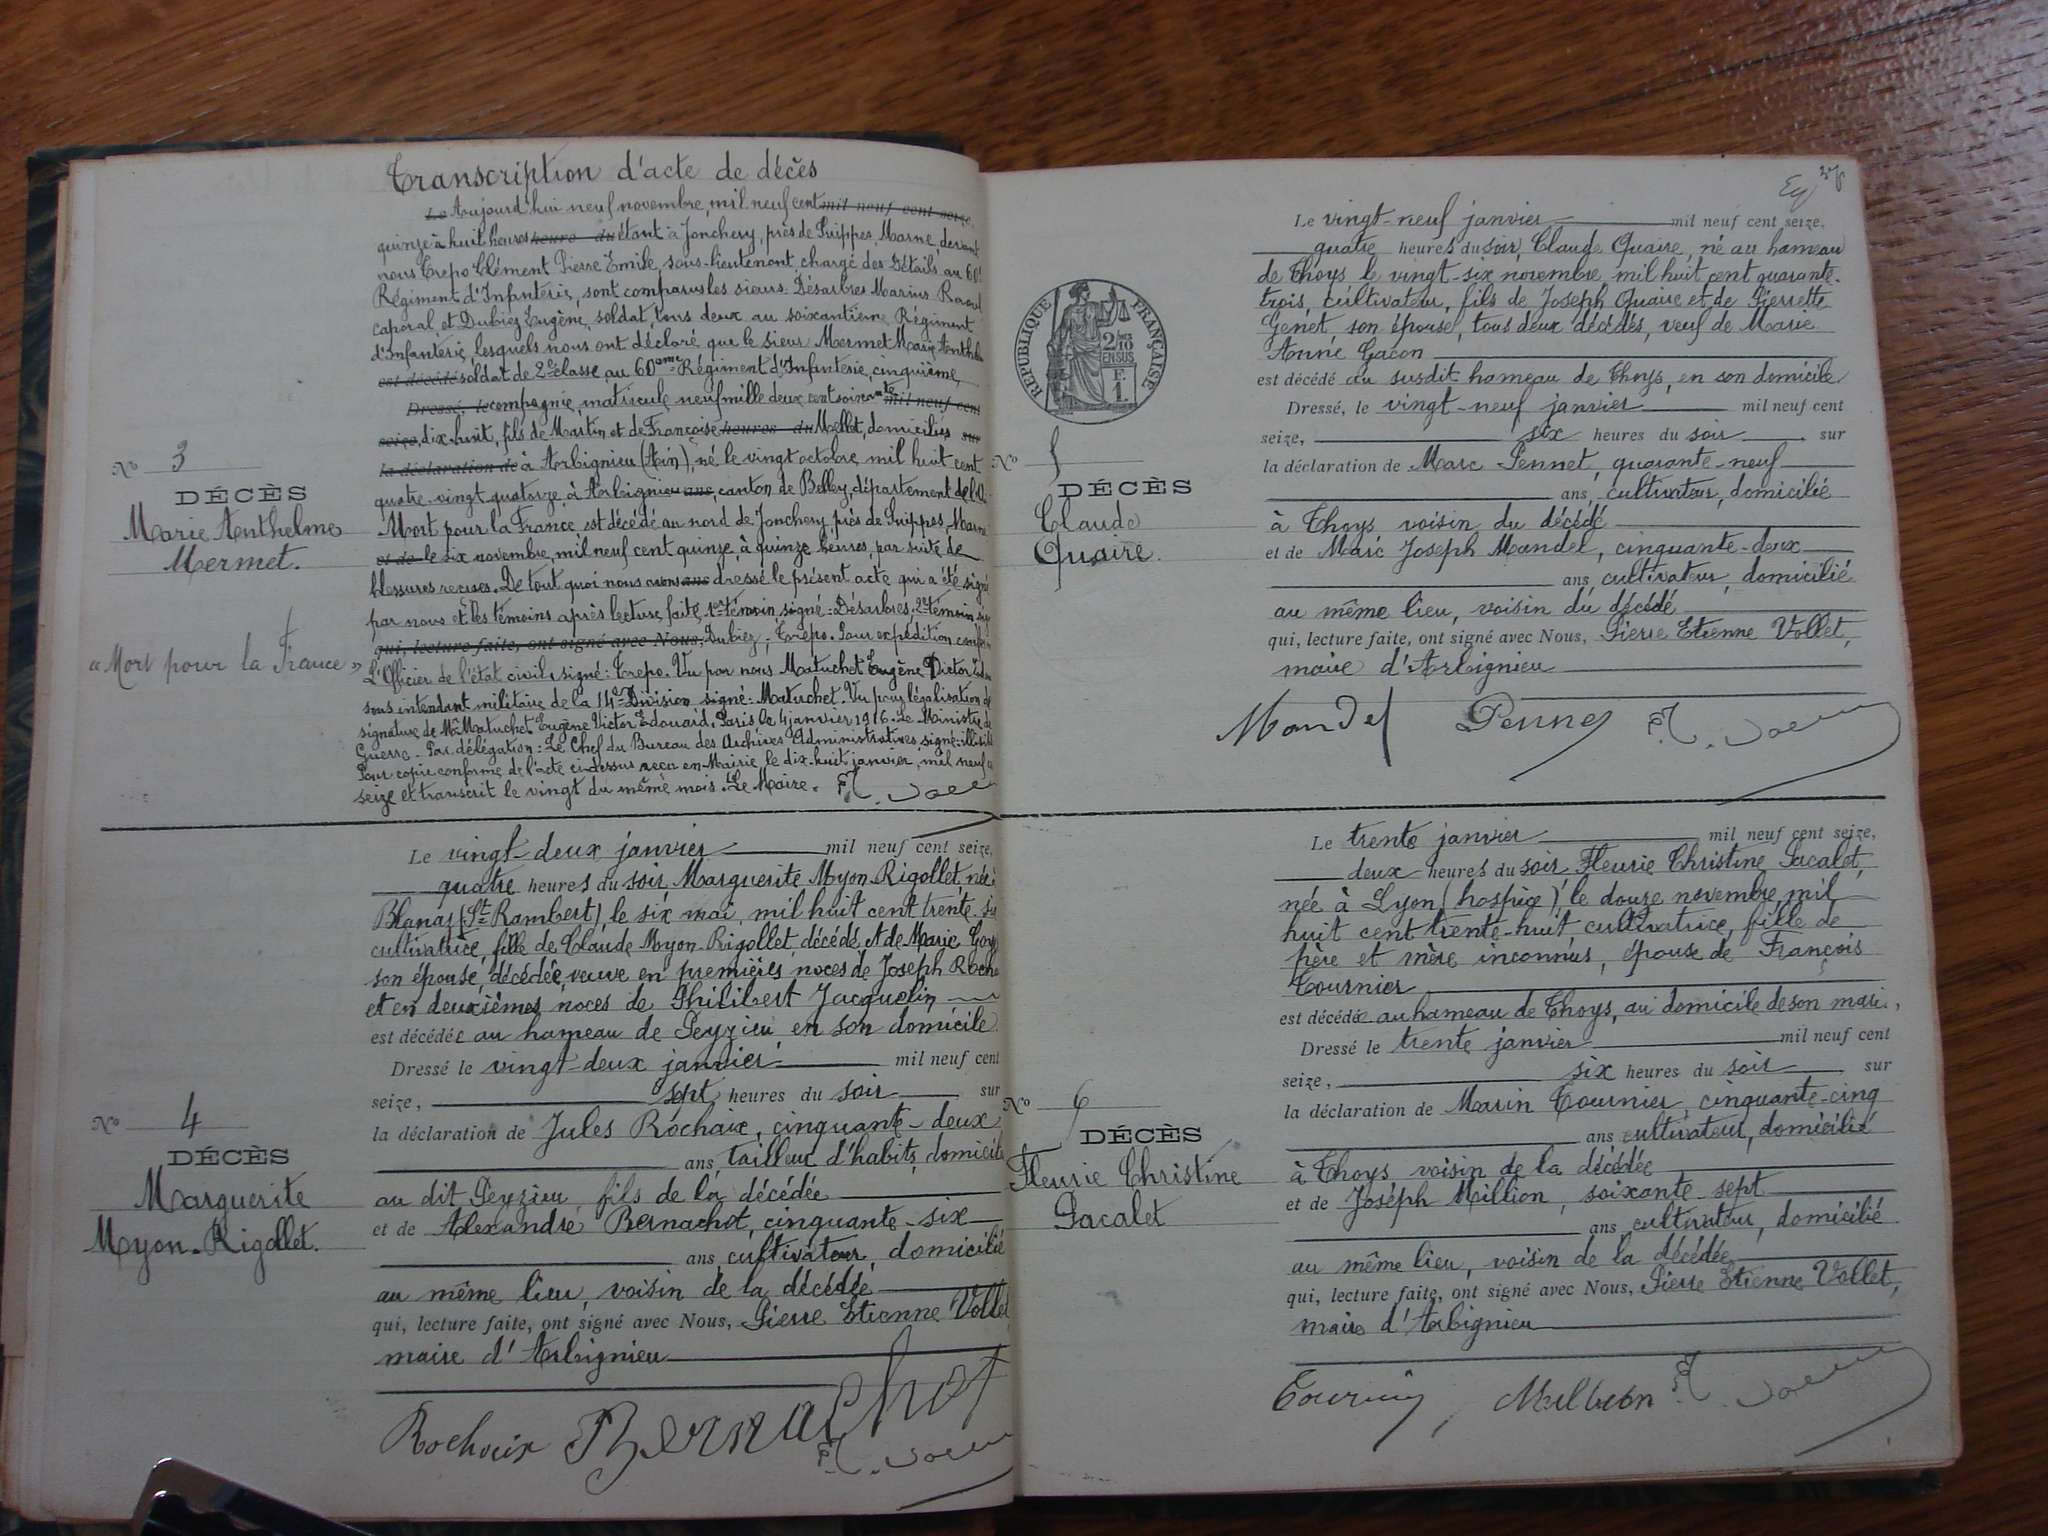 Transcription d'acte de décès
Le Aujourd'hui neuf novembre, mil neuf cent mil neuf cent seize,
quinze à huit heures heure du étant à Jonchery, près de Suippes, Marne, devant
nous Trepo Clément Pierre Emile, sous-lieutenant, chargé des Détails au 60e
Régiment d'Infanterie, sont comparus les sieurs Désarbres Marius Raoul
caporal et Dubiez Eugène, soldat, tous deux au soixantième Régiment
d'Infanterie, lesquels nous ont déclaré que le sieur Mermet Marie Anthel
est décédé soldat de 2e classe au 60ème Régiment d'Infanterie, cinquième
Dressé, le compagnie, matricule neuf mille deux cent soixante mil neuf cent
seize, dix-huit, fils de Martin et de Françoise heures du Mellet, domiciliés sur
la déclaration de à Arbignieu (Ain), né le vingt octobre mil huit cent
quatre-vingt quatorze à Arbignieu ans, canton de Belley, département de l'
Mort pour la France est décédé au nord de Jonchery, près de Suippes, Marne
et de le six novembre, mil neuf cent quinze, à quinze heures, par suite de
blessures reçues. De tout quoi nous avons ans dressé le présent acte qui a été signé
par nous et les témoins après lecture faite, 1er témoin signé : Désarbres ; 2e témoin
qui, lecture faite, ont signé avec Nous, Dubiez ; Trepo. Pour expédition
L'Officier de l'état civil, signé : Trepo. Vu par nous Matuchet Eugène Victor
sous intendant militaire de la 14e Division, signé : Matuchet. Vu pour légalisation de
signature de Mr Matuchet Eugène Victor Edouard. Paris le 4 janvier 1916. Le Ministre de
Guerre. Par délégation : Le Chef du Bureau des Archives Administratives, signé : illisible
Pour copie conforme de l'acte ci-dessus reçu en Mairie, le dix-huit janvier, mil neuf
seize et transcrit le vingt du même mois. Le Maire.
No 3
DÉCÈS
Marie Anthelme
Mermet.
« Mort pour la France »
Le vingt-deux janvier mil neuf cent seize,
quatre heures du soir, Marguerite Myon-Rigollet, née à
Blanaz (St Rambert) le six mai, mil huit cent trente
cultivatrice, fille de Claude Myon-Rigollet, décédé et de Marie
son épouse, décédée, veuve en premières noces de Joseph
et en deuxièmes noces de Philibert Jacquelin
est décédée au hameau de Peyzieu en son domicile
Dressé le vingt-deux janvier mil neuf cent
seize, sept heures du soir sur
la déclaration de Jules Rochaix, cinquante-deux
ans, tailleur d'habits, domicilié
au dit Peyzieu fils de la décédée
et de Alexandre Bernachot, cinquante-six
ans, cultivateur, domicilié
au même lieu, voisin de la décédée
qui, lecture faite, ont signé avec Nous, Pierre Etienne Vollet
maire d'Arbignieu
Rochaix Bernachot
No 4
DÉCÈS
Marguerite
Myon-Rigollet.
Le vingt-neuf janvier mil neuf cent seize,
quatre heures du soir, Claude Quaire, né au hameau
de Thoys le vingt-six novembre mil huit cent quarante-
trois, cultivateur, fils de Joseph Quaire et de Pierrette
Genet, son épouse, tous deux décédés, veuf de Marie
Anne Gacon
est décédé au susdit hameau de Thoys, en son domicile
Dressé, le vingt-neuf janvier mil neuf cent
seize, six heures du soir sur
la déclaration de Marc Pennet, quarante-neuf
ans, cultivateur, domicilié
à Thoys voisin du décédé
et de Marc Joseph Mandel, cinquante-deux
ans, cultivateur, domicilié
au même lieu, voisin du décédé
qui, lecture faite, ont signé avec Nous, Pierre Etienne Vollet,
maire d'Arbignieu
Mandel Pennet
RÉPUBLIQUE FRANÇAISE
2/10
EN SUS
F.
1.
No 5
DÉCÈS
Claude
Quaire.
Le trente janvier mil neuf cent seize,
deux heures du soir Fleurie Christine Pacalet,
née à Lyon (hospice) le douze novembre mil
huit cent trente-huit, cultivatrice, fille de
père et mère inconnus, épouse de François
Tournier
est décédée au hameau de Thoys, au domicile de son mari,
Dressé le trente janvier mil neuf cent
seize, six heures du soir sur
la déclaration de Marin Tournier, cinquante-cinq
ans cultivateur, domicilié
à Thoys voisin de la décédée
et de Joséph Million, soixante-sept
ans, cultivateur, domicilié
au même lieu, voisin de la décédée
qui, lecture faite, ont signé avec Nous, Pierre Etienne Vollet,
maire d'Arbignieu
No 6
DÉCÈS
Fleurie Christine
Pacalet